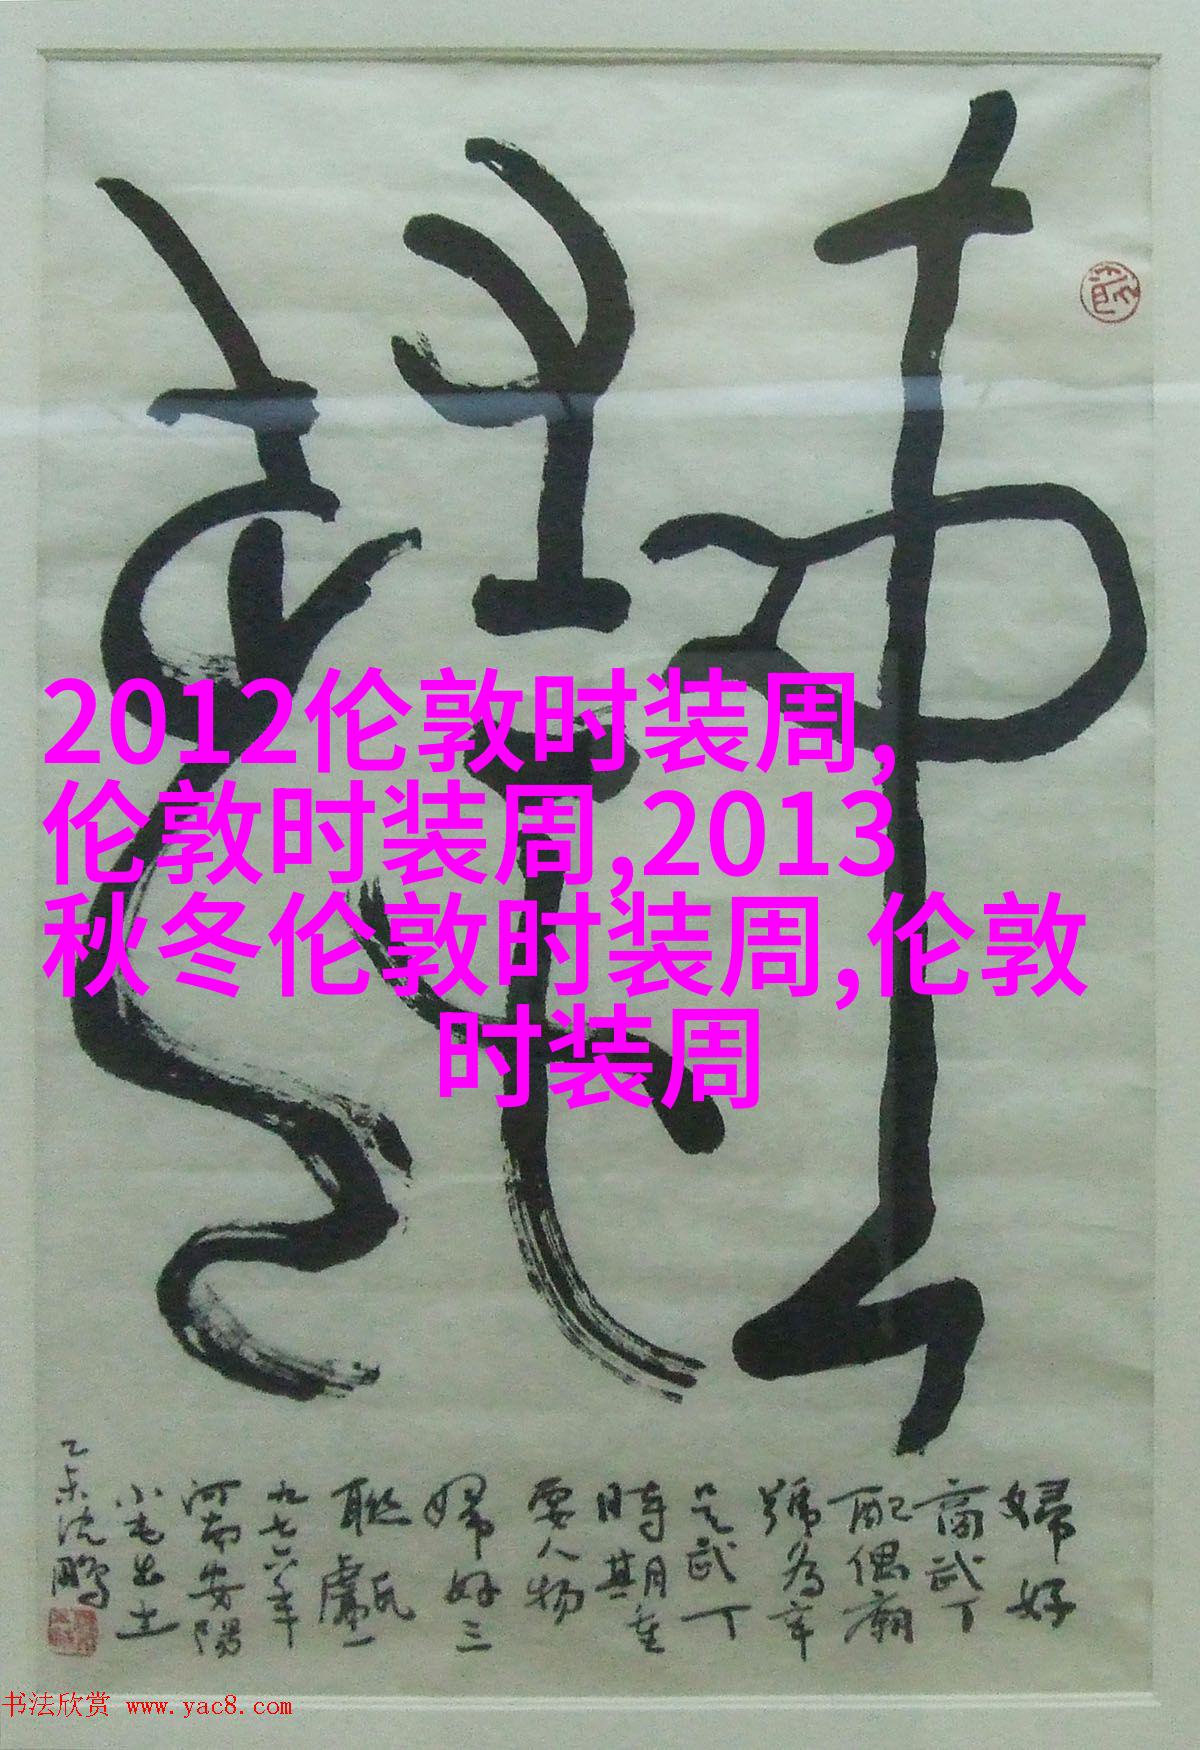 2012伦敦时装周,
伦敦时装周,2013
秋冬伦敦时装周,伦敦
时装周
婦好
商武丁
配偶廟
號為辛
是武丁
時期重
要人物
婦好三
聯甗一
九七六年
河南安陽
小屯出土
乙未沈鹏
书法欣赏 www.yac8.com